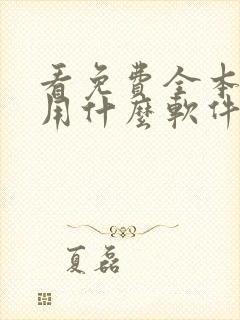 看免費全本
用什麼軟件
夏磊